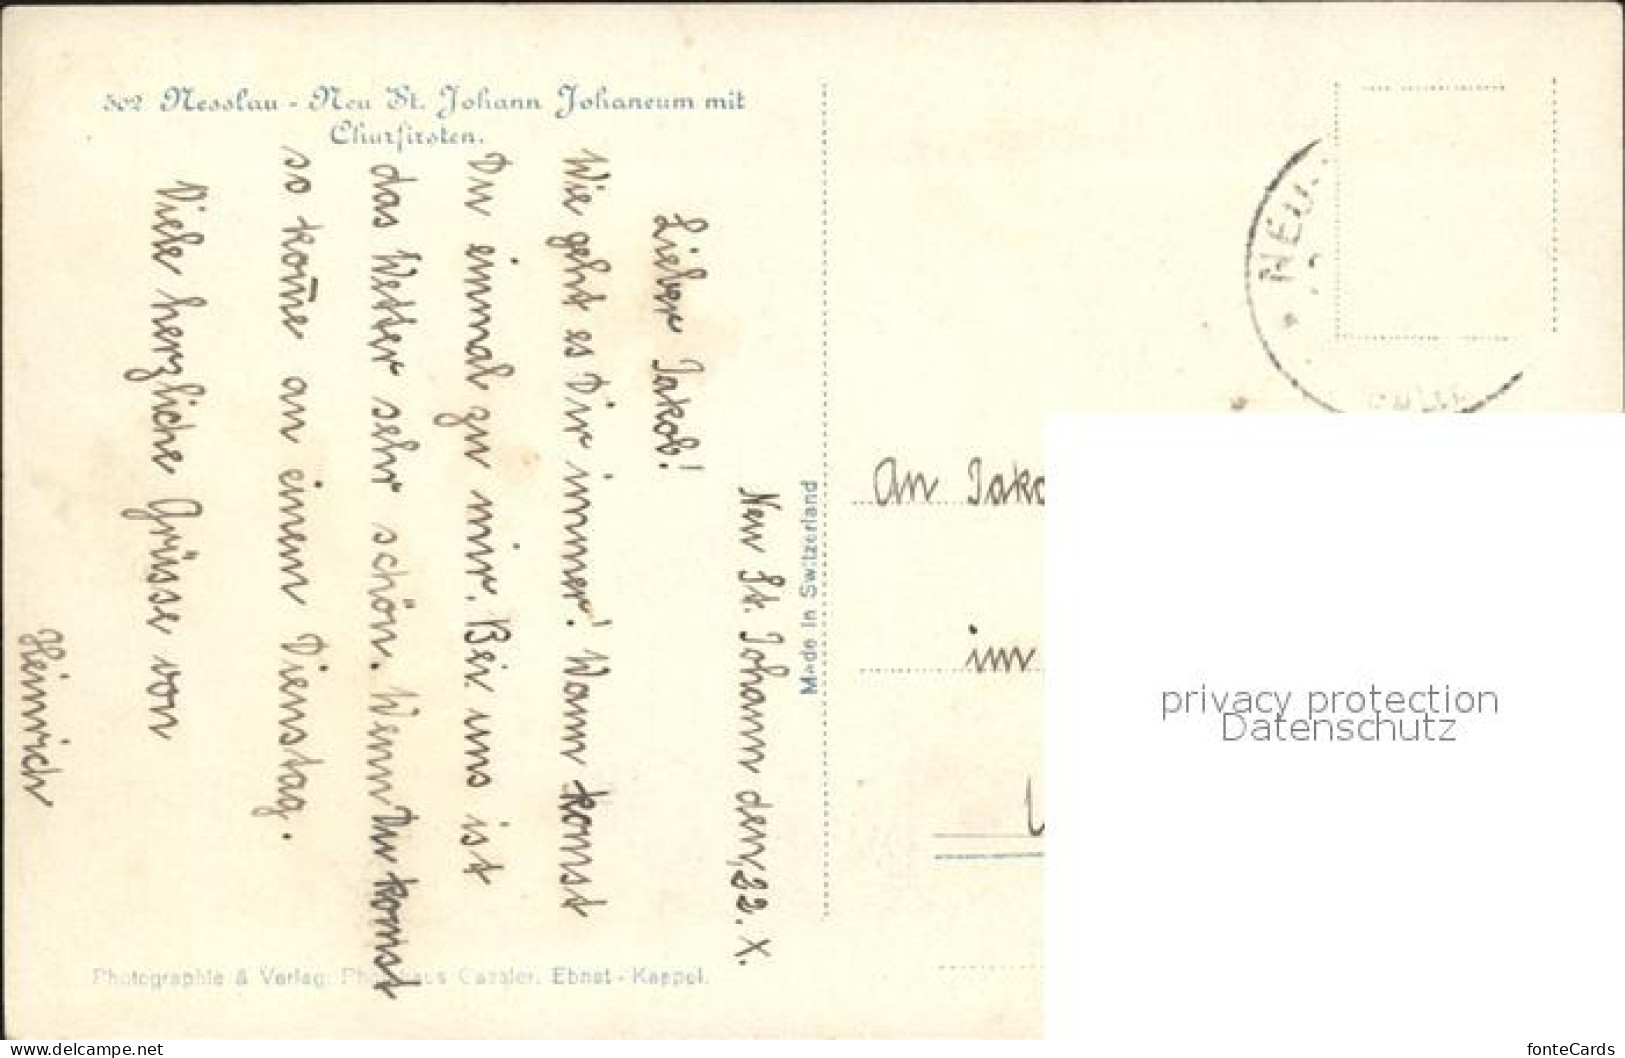 502 Nesslau - Neu St. Johann Johaneum mit
Churfirsten.
Neu St. Johann den, 22. X.
Lieber Jakob!
Wie geht es Dir immer! Wann komst
Du einmal zu mir. Bei uns ist
das Wetter sehr schön. Wenn Du komst
so kom̄e an einem Dienstag.
Viele herzliche Grüsse von
Heinrich
Photographie & Verlag: Photohaus Gassler, Ebnat - Kappel.
Made in Switzerland
NEU
An Jako
im
privacy protection
Datenschutz
www.delcampe.net
fonteCards